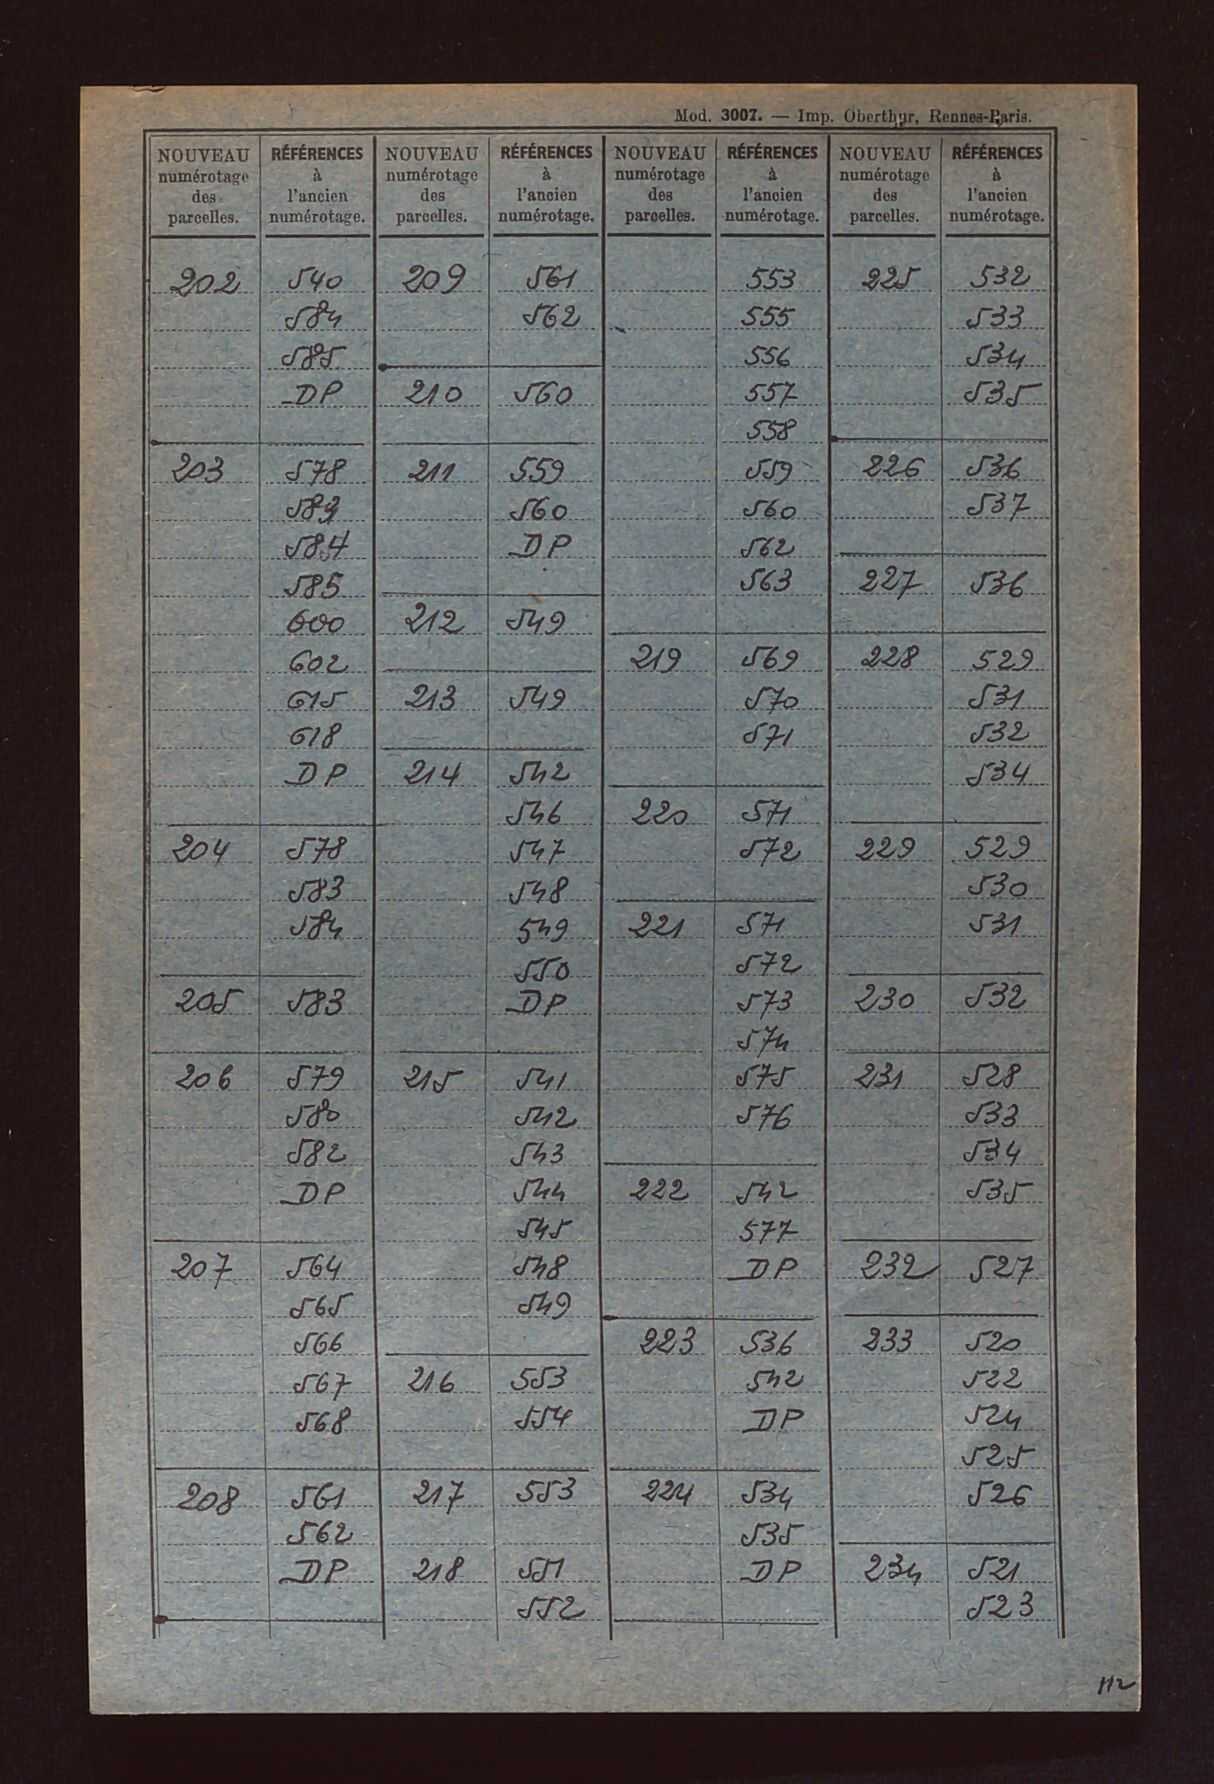 Mod. 3007. — Imp. Oberthur, Rennes-Paris.
NOUVEAU numérotage des parcelles. RÉFÉRENCES à l'ancien numérotage. NOUVEAU numérotage des parcelles. RÉFÉRENCES à l'ancien numérotage. NOUVEAU numérotage des parcelles. RÉFÉRENCES à l'ancien numérotage. NOUVEAU numérotage des parcelles. RÉFÉRENCES à l'ancien numérotage.
202 540
584
585
DP
203 578
583
584
585
600
602
615
618
DP
204 578
583
584
205 583
206 579
580
582
DP
207 564
565
566
567
568
208 561
562
DP
209 561
562
210 560
211 559
560
DP
212 549
213 549
214 542
546
547
548
549
550
DP
215 541
542
543
544
545
548
549
216 553
554
217 553
218 551
552
553
555
556
557
558
559
560
562
563
219 569
570
571
220 571
572
221 571
572
573
574
575
576
222 542
577
DP
223 536
542
DP
224 534
535
DP
225 532
533
534
535
226 536
537
227 536
228 529
531
532
534
229 529
530
531
230 532
231 528
533
534
535
232 527
233 520
522
524
525
526
234 521
523
112